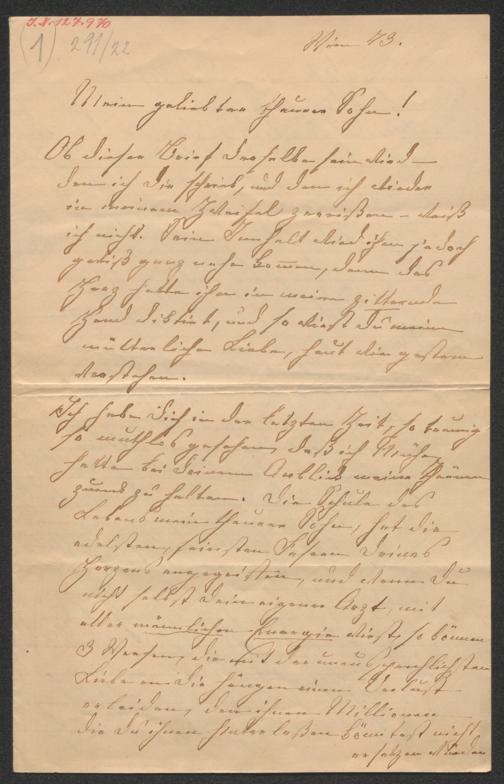 I.N. 124.970
1
291/22
Wien 73.
Mein geliebter theurer Sohn!
Ob dieser Brief derselbe sein wird
den ich Dir schrieb, und den ich wieder
in meinem Zweifel zerrißen – weiß
ich nicht. Sein Inhalt wird ihm jedoch
gewiß ganz nahe kommen, denn das
Herz hatte ihn in meine zitternde
Hand diktirt, und so wirst Du meine
mütterliche Liebe, heut wie gestern
verstehen.
Ich habe Dich in der letzten Zeit, so traurig
so muthlos gesehen, daß ich Mühe
hatte bei Deinem Anblick meine Thränen
zurück zu halten. Die Schule des
Lebens mein theurer Sohn, hat die
edelsten, feinsten Fasern Deines
Herzens angegriffen, und wenn Du
nicht selbst Dein eigener Arzt, mit
aller männlicher Energie wirst, so können
3 Wesen, die mit der unaussprechlichsten
Liebe an Dir hängen einen Verlust
erleiden, den ihnen Millionen
die Du ihnen hinterlaßen könntest nicht
ersetzen würden